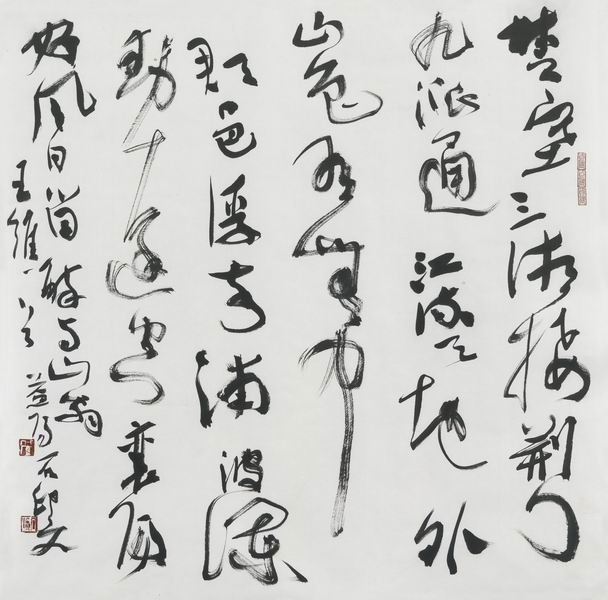 楚塞三湘接荆门
九派通江流天地外
山色有无中
郡邑浮前浦波澜
動遠空襄陽
好风日留醉与山翁
王維
益陽石